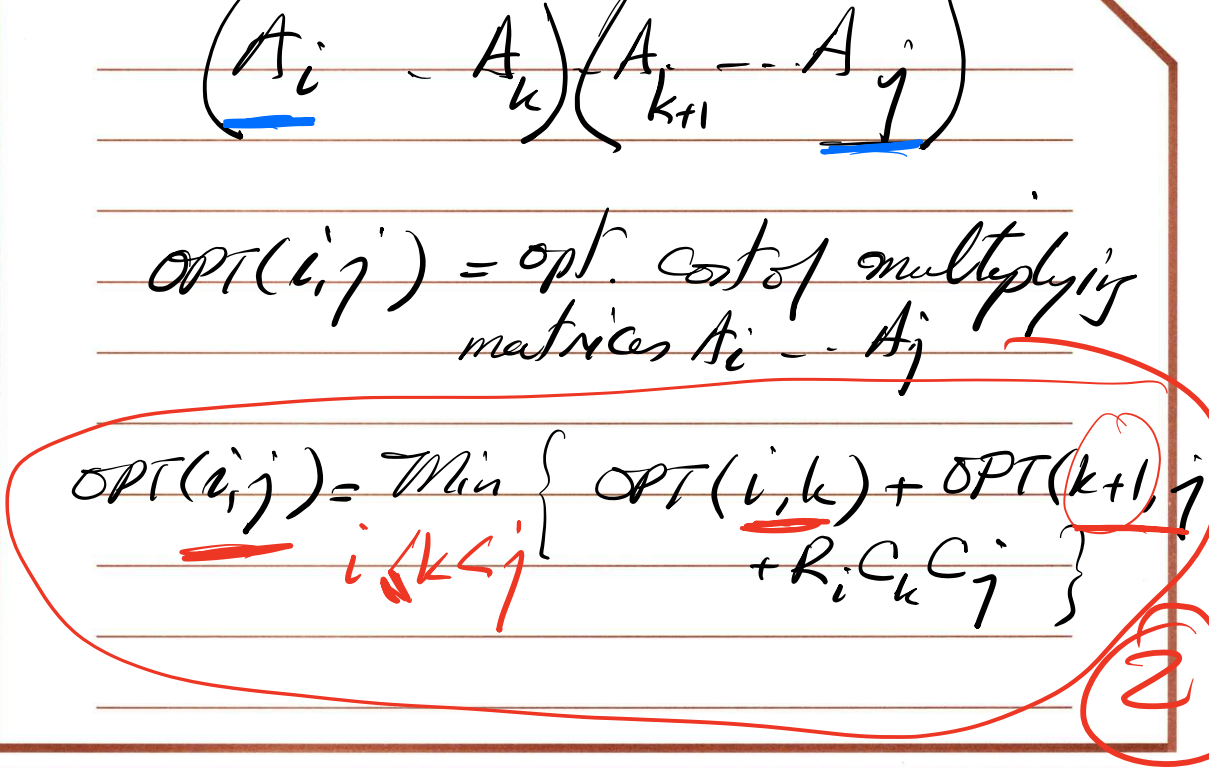 (Aᵢ - - Aₖ)(Aₖ₊₁ --- Aⱼ)
OPT(i,j) = opt. cost of multiplying
matrices Aᵢ -- Aⱼ
OPT(i,j) = Min { OPT(i,k) + OPT(k+1, j
i ≤ k < j
+ Rᵢ Cₖ Cⱼ }
2